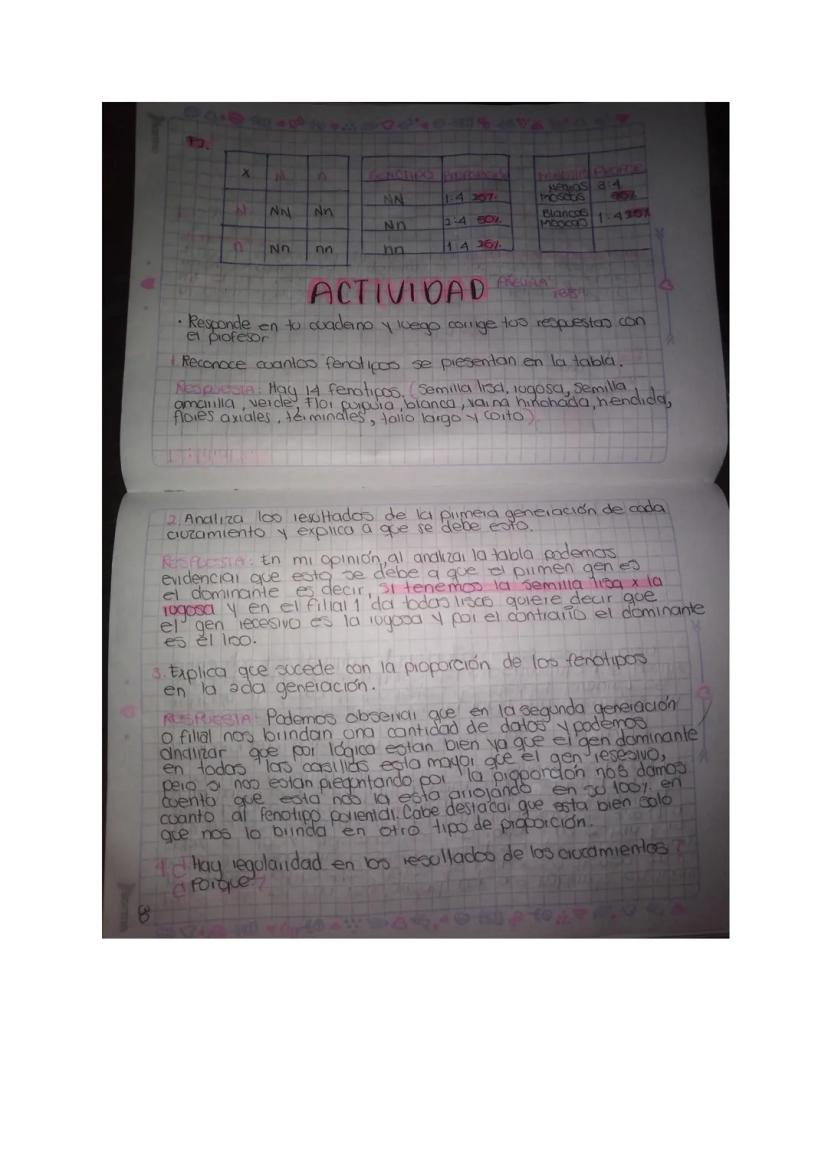 12.
X N n
N NN Nn
n Nn nn
GENOTIPO PROPORCIÓN
NN 1:4 25%
Nn 2:4 50%
nn 1:4 25%
Negras 3:4
moscas
Blancas 1:4 25%
ACTIVIDAD PÁGINA
• Responde en tu cuaderno y luego corrige tus respuestas con
el profesor
1. Reconoce cuantos fenoticos se presentan en la tabla.
RESPUESTA: Hay 14 fenotipos. (Semilla lisa, rugosa, semilla
amarilla, verde, flor purpura, blanca, vaina hinchada, hendida,
flores axiales, terminales, tallo largo y corto)
2. Analiza los resultados de la primera generación de cada
cruzamiento y explica a que se debe esto.
RESPUESTA: En mi opinión, al analizar la tabla podemos
evidenciar que esto se debe a que el primen gen es
el dominante es decir, si tenemos la semilla lisa x la
rugosa y en el filial 1 da todas lisas quiere decir que
el gen recesivo es la rugosa y por el contrario el dominante
es el liso.
3. Explica que sucede con la proporción de los fenotipos
en la 2da generación.
RESPUESTA: Podemos observar que en la segunda generación
o filial nos brindan una cantidad de datos y podemos
analizar que por lógica estan bien ya que el gen dominante
en todas las casillas esta mayor que el gen resesivo,
pero si nos estan preguntando por la proporción nos damos
cuenta que esta nos la esta arrojando en su 100% en
cuanto al fenotipo parental. Cabe destacar que esta bien solo
que nos lo brinda en otro tipo de proporción.
4. ¿Hay regularidad en los resultados de los cruzamientos?
¿Porque?
8